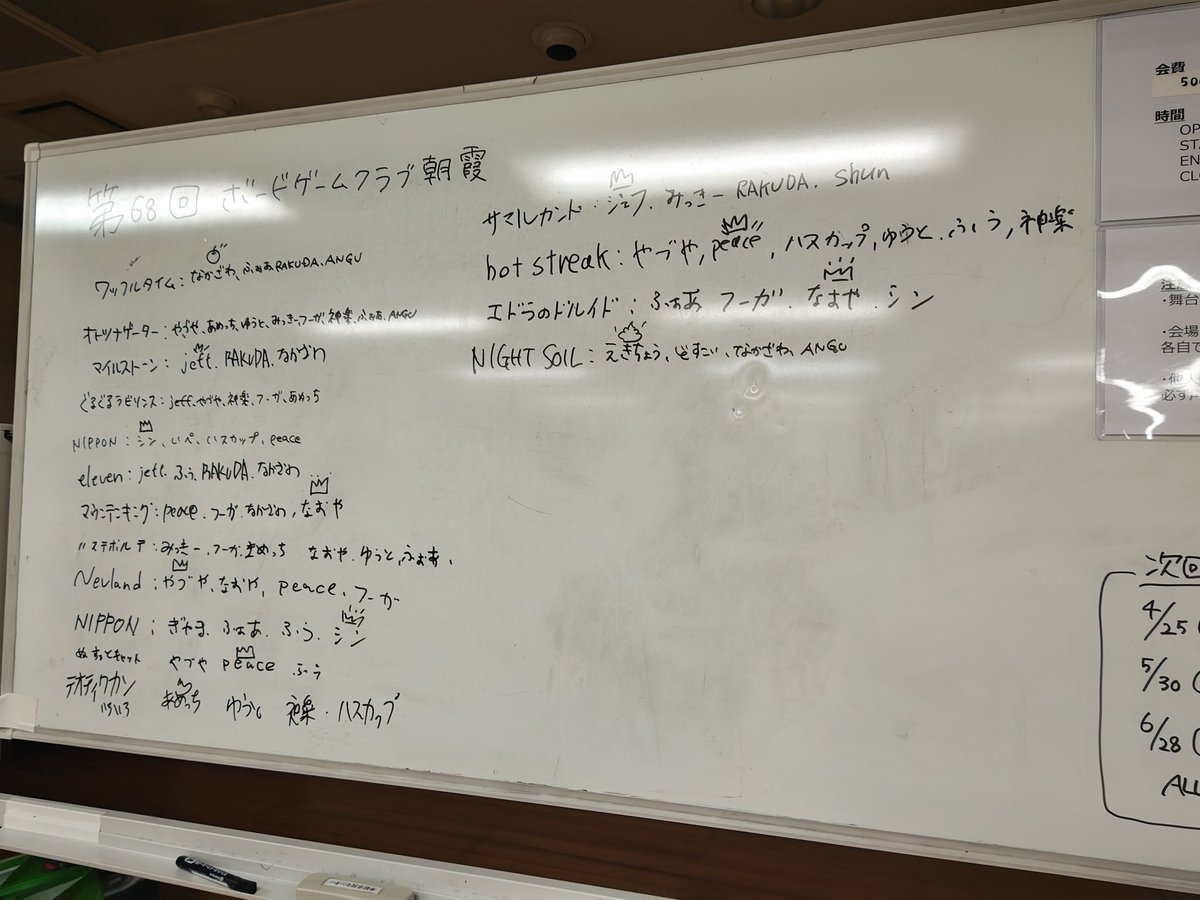 第68回 ボードゲームクラブ朝霞
ワッフルタイム：なかざわ、ふぁあ RAKUDA、ANGU
オトツナゲーター：やづや、あめっち、ゆうと、みっきー、フーガ、神楽、ふぁあ、ANGU
マイルストーン：jeff、RAKUDA、なかざわ
ぐるぐるラビリンス：jeff、やづや、神楽、フーガ、あめっち
NIPPON：シン、いぺ、ハスカップ、peace
eleven：jeff、ふう、RAKUDA、なかざわ
マウンテンキング：peace、フーガ、なかざわ、なおや
みっきー、フーガ、なおや、ゆうと、ふぁあ、
Nevland：やづや、なおや、peace、フーガ
NIPPON：ぎやま、ふぁあ、ふう、シン
ぬすっとキャット やづや peace ふう
テオティワカン いろいろ あめっち 神楽・ハスカップ
サマルカンド：ジェフ、みっきー RAKUDA. Shun
hot streak：やづや, peace, ハスカップ, ゆうと, ふう, 神楽
エドラのドルイド：ふぁあ フーガ、なおや、シン
NIGHT SOIL：えきちょう、どすこい、なかざわ、ANGU
会費
50
時間
OP
STA
EN
CL
・舞台
・会場
各自で
・他人
必ず
次回
4/25 (
5/30 (
6/28 (
ALL